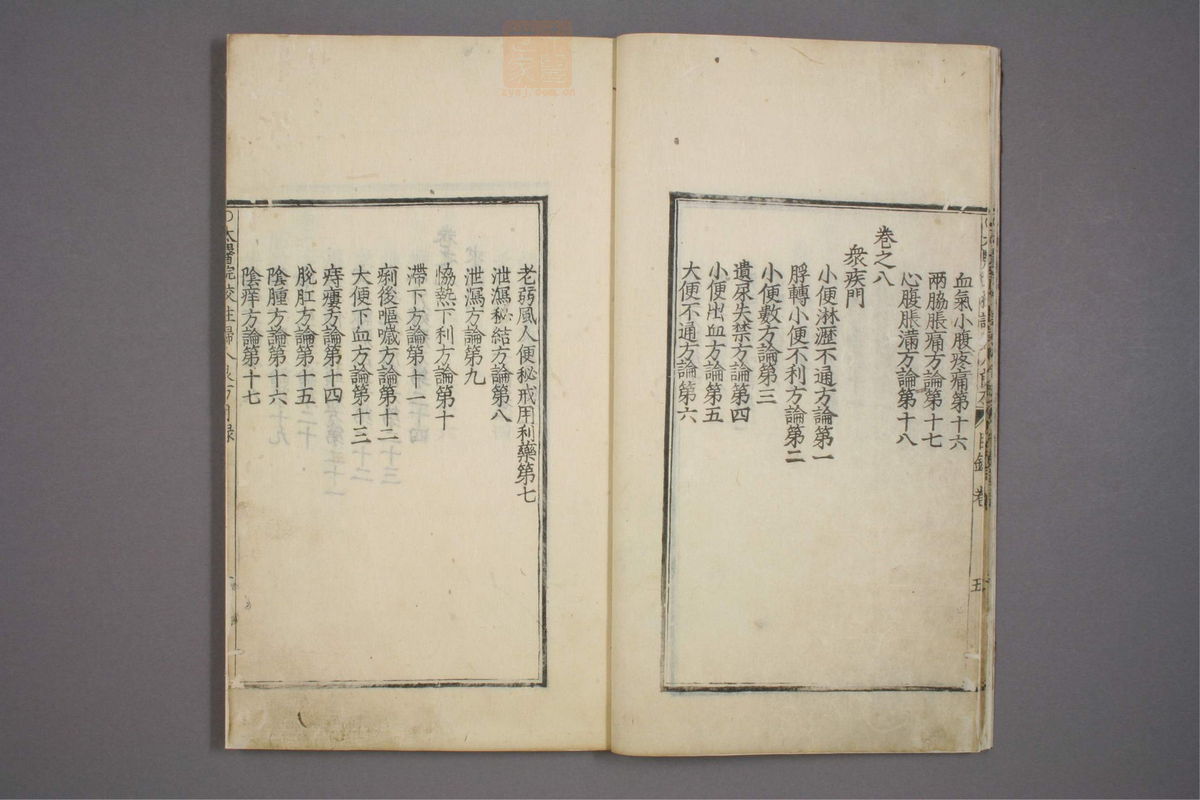 血氣小腹疼痛第十六
兩脇脹痛方論第十七
心腹脹滿方論第十八
卷之八
衆疾門
小便淋瀝不通方論第一
脬轉小便不利方論第二
小便數方論第三
遺尿失禁方論第四
小便出血方論第五
大便不通方論第六
老弱風人便秘戒用利藥第七
泄瀉秘結方論第八
泄瀉方論第九
恊熱下利方論第十
滯下方論第十一
痢後嘔噦方論第十二
大便下血方論第十三
痔瘻方論第十四
脫肛方論第十五
陰腫方論第十六
陰痒方論第十七
太醫院校註婦人良方目録
目録 卷
五